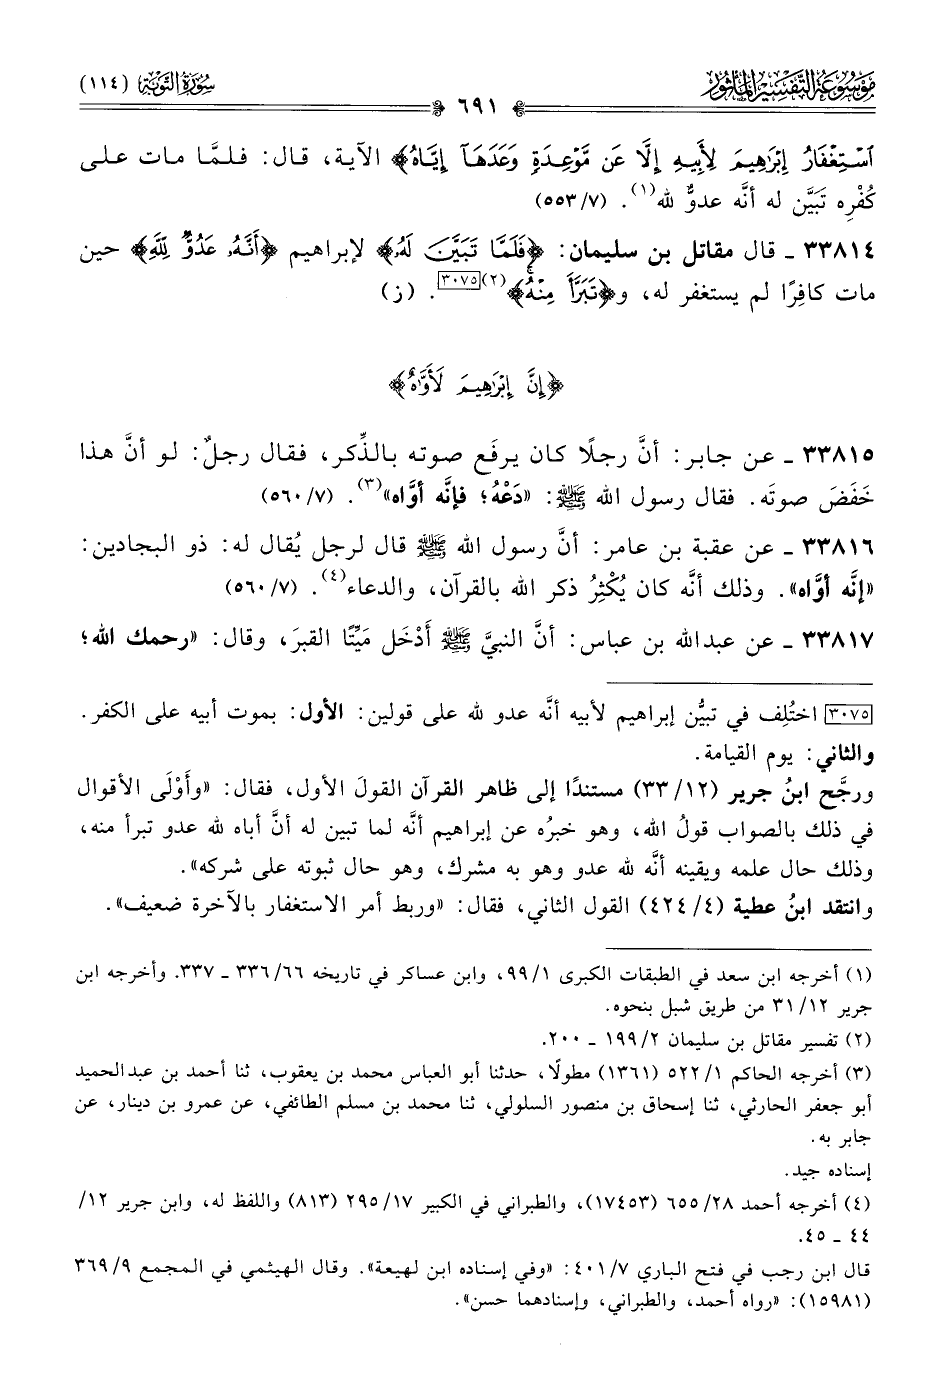 موسوعة التفسير المأثور
سورة التوبة (١١٤)
٦٩١
ٱسْتِغْفَارُ إِبْرَٰهِيمَ لِأَبِيهِ إِلَّا عَن مَّوْعِدَةٍ وَعَدَهَآ إِيَّاهُ﴾ الآية، قال: فلمَّا مات على
كُفْرِه تبَيَّن له أنَّه عدوٌّ لله(١). (٧/ ٥٥٣)
٣٣٨١٤ ـ قال مقاتل بن سليمان: ﴿فَلَمَّا تَبَيَّنَ لَهُۥٓ﴾ لإبراهيم ﴿أَنَّهُۥ عَدُوٌّ لِّلَّهِ﴾ حين
مات كافِرًا لم يستغفر له، و﴿تَبَرَّأَ مِنْهُ﴾(٢)[٣٠٧٥]. (ز)
﴿إِنَّ إِبْرَٰهِيمَ لَأَوَّٰهٌ﴾
٣٣٨١٥ ـ عن جابر: أنَّ رجلًا كان يرفَع صوته بالذِّكر، فقال رجلٌ: لو أنَّ هذا
خَفَضَ صوتَه. فقال رسول الله ﷺ: «دَعْهُ؛ فإنَّه أوَّاه»(٣). (٧/ ٥٦٠)
٣٣٨١٦ ـ عن عقبة بن عامر: أنَّ رسول الله ﷺ قال لرجل يُقال له: ذو البجادين:
«إنَّه أوَّاه». وذلك أنَّه كان يُكْثِرُ ذكر الله بالقرآن، والدعاء(٤). (٧/ ٥٦٠)
٣٣٨١٧ ـ عن عبدالله بن عباس: أنَّ النبيَّ ﷺ أَدْخَل مَيِّتًا القبرَ، وقال: «رحمك الله؛
[٣٠٧٥] اختُلِف في تبيُّن إبراهيم لأبيه أنَّه عدو لله على قولين: الأول: بموت أبيه على الكفر.
والثاني: يوم القيامة.
ورجَّح ابنُ جرير (١٢/ ٣٣) مستندًا إلى ظاهر القرآن القولَ الأول، فقال: «وأَوْلَى الأقوال
في ذلك بالصواب قولُ الله، وهو خبرُه عن إبراهيم أنَّه لما تبين له أنَّ أباه لله عدو تبرأ منه،
وذلك حال علمه ويقينه أنَّه لله عدو وهو به مشرك، وهو حال ثبوته على شركه».
وانتقد ابنُ عطية (٤/ ٤٢٤) القول الثاني، فقال: «وربط أمر الاستغفار بالآخرة ضعيف».
(١) أخرجه ابن سعد في الطبقات الكبرى ١/ ٩٩، وابن عساكر في تاريخه ٦٦/ ٣٣٦ ـ ٣٣٧. وأخرجه ابن
جرير ١٢/ ٣١ من طريق شبل بنحوه.
(٢) تفسير مقاتل بن سليمان ٢/ ١٩٩ ـ ٢٠٠.
(٣) أخرجه الحاكم ١/ ٥٢٢ (١٣٦١) مطولًا، حدثنا أبو العباس محمد بن يعقوب، ثنا أحمد بن عبدالحميد
أبو جعفر الحارثي، ثنا إسحاق بن منصور السلولي، ثنا محمد بن مسلم الطائفي، عن عمرو بن دينار، عن
جابر به.
إسناده جيد.
(٤) أخرجه أحمد ٢٨/ ٦٥٥ (١٧٤٥٣)، والطبراني في الكبير ١٧/ ٢٩٥ (٨١٣) واللفظ له، وابن جرير ١٢/
٤٤ ـ ٤٥.
قال ابن رجب في فتح الباري ٧/ ٤٠١: «وفي إسناده ابن لهيعة». وقال الهيثمي في المجمع ٩/ ٣٦٩
(١٥٩٨١): «رواه أحمد، والطبراني، وإسنادهما حسن».